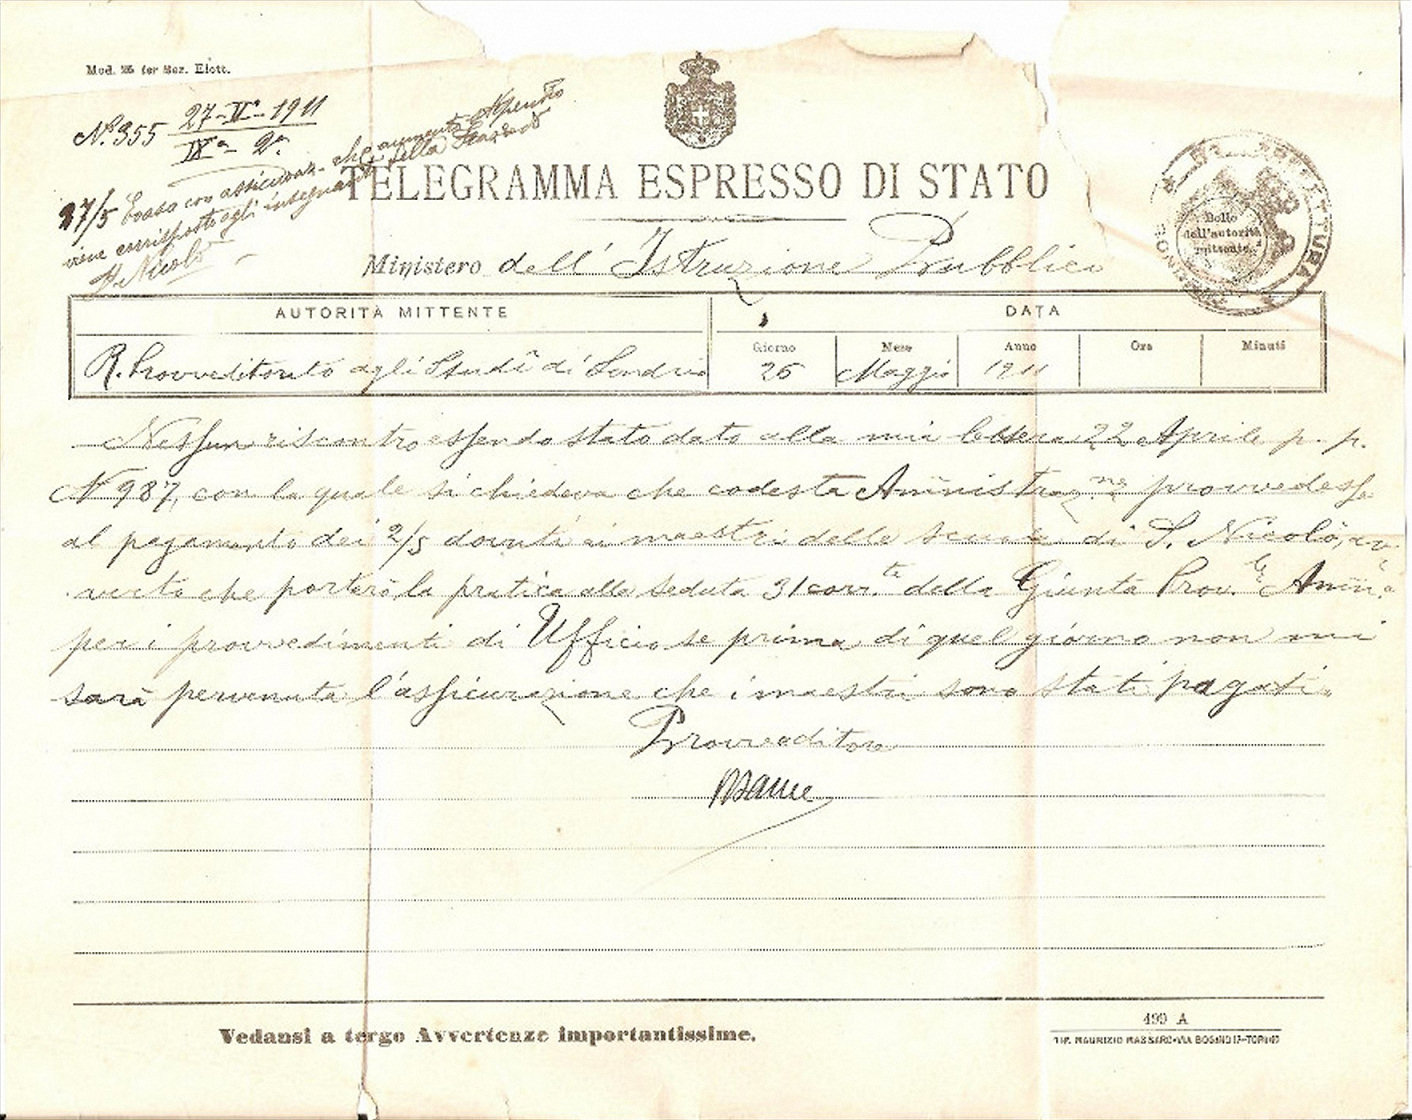 Mod. 25 ter Ser. Elett.
N.° 355 27-V-1911
IXa - 2a.
27/5 Evaso con assicuraz. che aumento stipendio
viene corrisposto agli insegnanti della
De Nicola
TELEGRAMMA ESPRESSO DI STATO
Ministero dell'Istruzione Pubblica
PREFETTURA
Bollo
dell'autorità
mittente
AUTORITÀ MITTENTE
DATA
Giorno Mese Anno Ora Minuti
R. Provveditorato agli Studi di Sondrio 26 Maggio 1911
Nessun riscontro essendo stato dato alla mia lettera 22 Aprile p. p.
N 987, con la quale si chiedeva che codesta Amministraz.ne provvedesse
al pagamento dei 2/5 dovuti ai maestri delle scuole di S. Nicolò, av
verto che porterò la pratica alla seduta 31 corr.te della Giunta Prov.le Amm.a
per i provvedimenti di Ufficio se prima di quel giorno non mi
sarà pervenuta l'assicurazione che i maestri sono stati pagati.
Provveditore
Vedansi a tergo Avvertenze importantissime.
499 A
TIP. MAURIZIO MASSARO-VIA BOGINO 17-TORINO